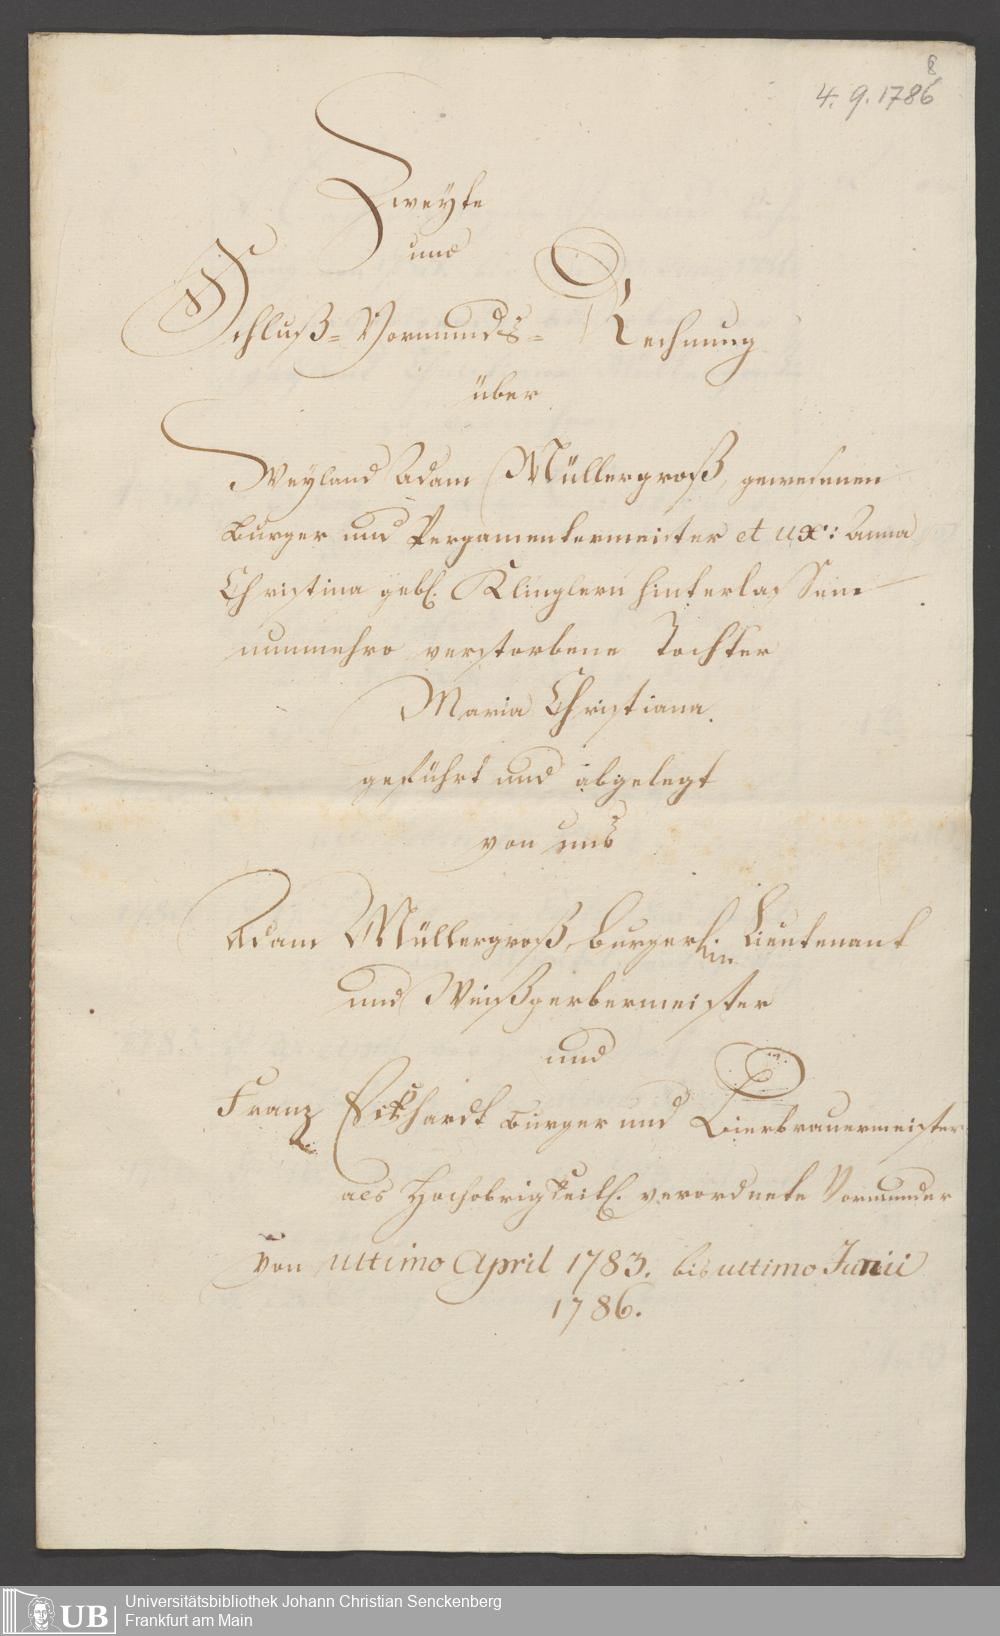 8
4. 9. 1786
Zweyte
und
Schluß-Vormunds-Rechnung
über
Weyland Adam Müllergroß, gewesenen
Burger und Pergamentermeister et ux: Anna
Christina gebl. Klinglern hinterlassene
nunmehro verstorbene Tochter
Maria Christiana.
geführt und abgelegt
von uns
Adam Müllergroß, burgerl. Lieutenant
und Weißgerbermeister
und
Franz Eckhardt Burger und Bierbrauermeister
als Hochobrigkeitl. verordnete Vormunder
von ultimo April 1783. bis ultimo Junii
1786.
UB
Universitätsbibliothek Johann Christian Senckenberg
Frankfurt am Main